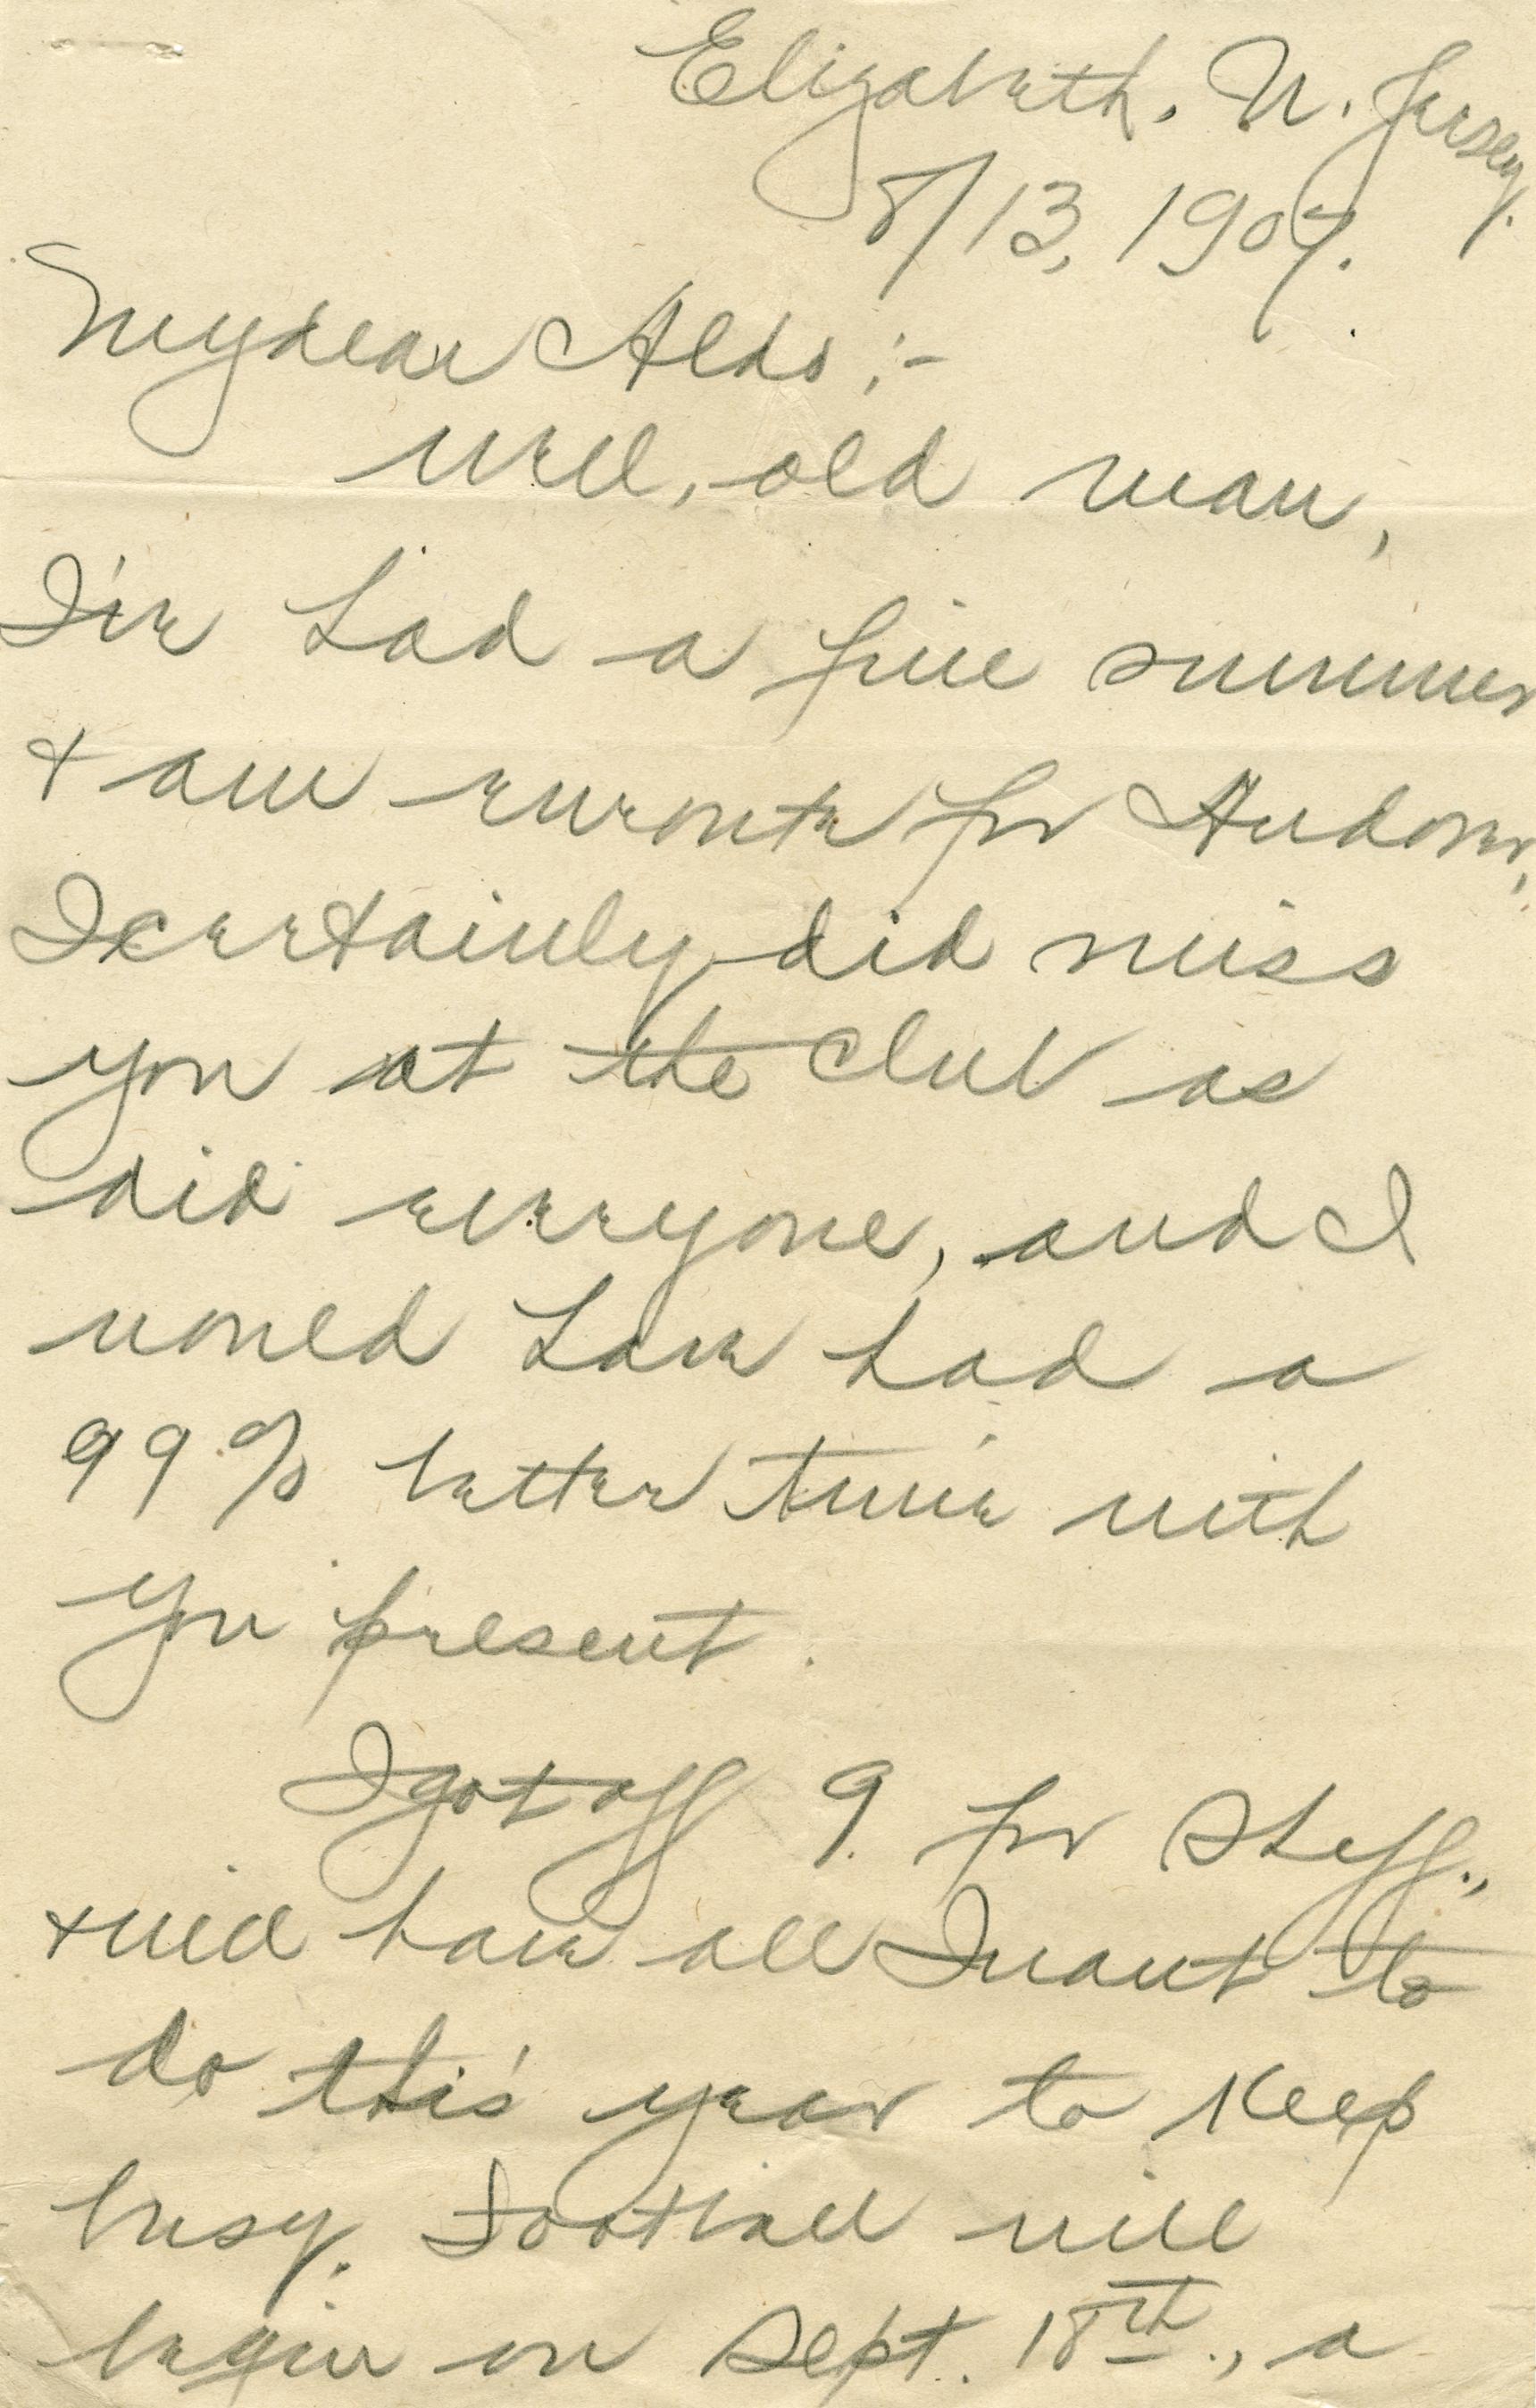 Elizabeth, N. Jersey.
8/13, 1907.
My dear Aldo :-
Well, old man,
I've had a fine summer
+ am enroute for Andover,
I certainly did miss
you at the club as
did everyone, and I
would have had a
99% better time with
you present.
I got off 9 for Sheff.,
+ will have all I want to
do this year to keep
busy. Football will
begin on Sept. 18th., a